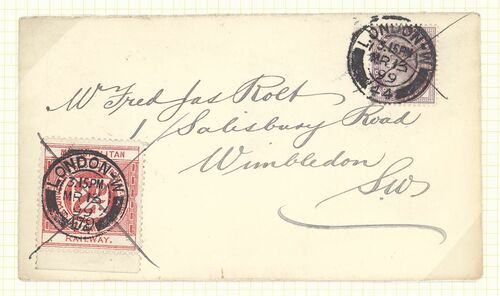 LONDON-W
7 3.15PM
MR 15
99
44
Mr Fred Jas Rolt
1/ Salisbury Road
Wimbledon
SW
METROPOLITAN
LONDON-W
3.15PM
99
RAILWAY.